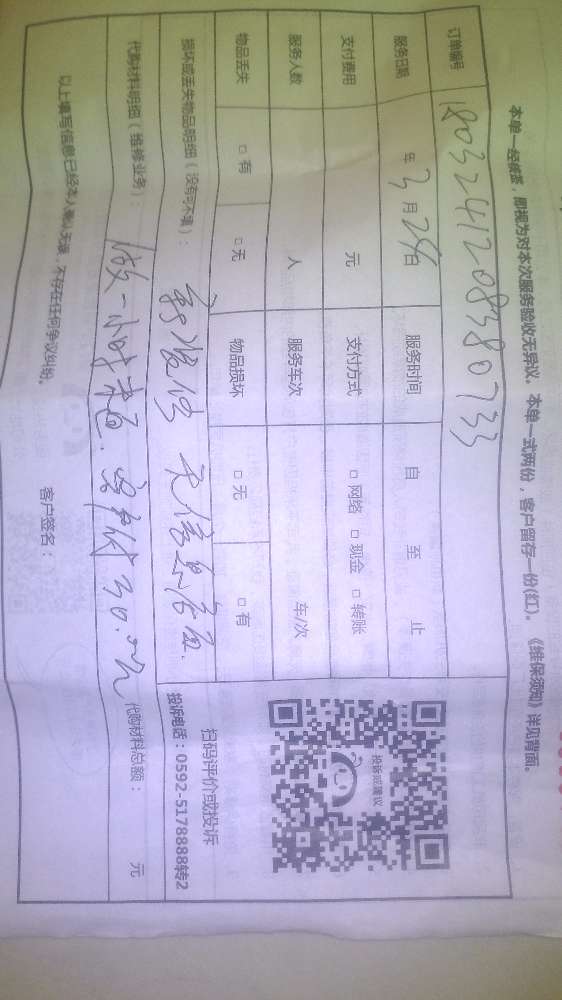 本单一经签签，即视为对本次服务验收无异议。本单一式两份，客户留存一份(红)。《维保须知》详见背面。
订单编号 180324120838073
服务日期 年 3 月 24 日 服务时间 自 至 止
支付费用 元 支付方式 □ 网络 □ 现金 □ 转账
服务人数 人 服务车次 车/次
物品丢失 □ 有 □ 无 物品损坏 □ 无 □ 有
投诉或建议
扫码评价或投诉
投诉电话：0592-5178888转2
损坏或丢失物品明细（没有可不填）：
代购材料明细（维修业务）： 做一小时 30.0元 代购材料总额： 元
以上填写信息已经本人确认无误，不存在任何争议纠纷。 客户签名：